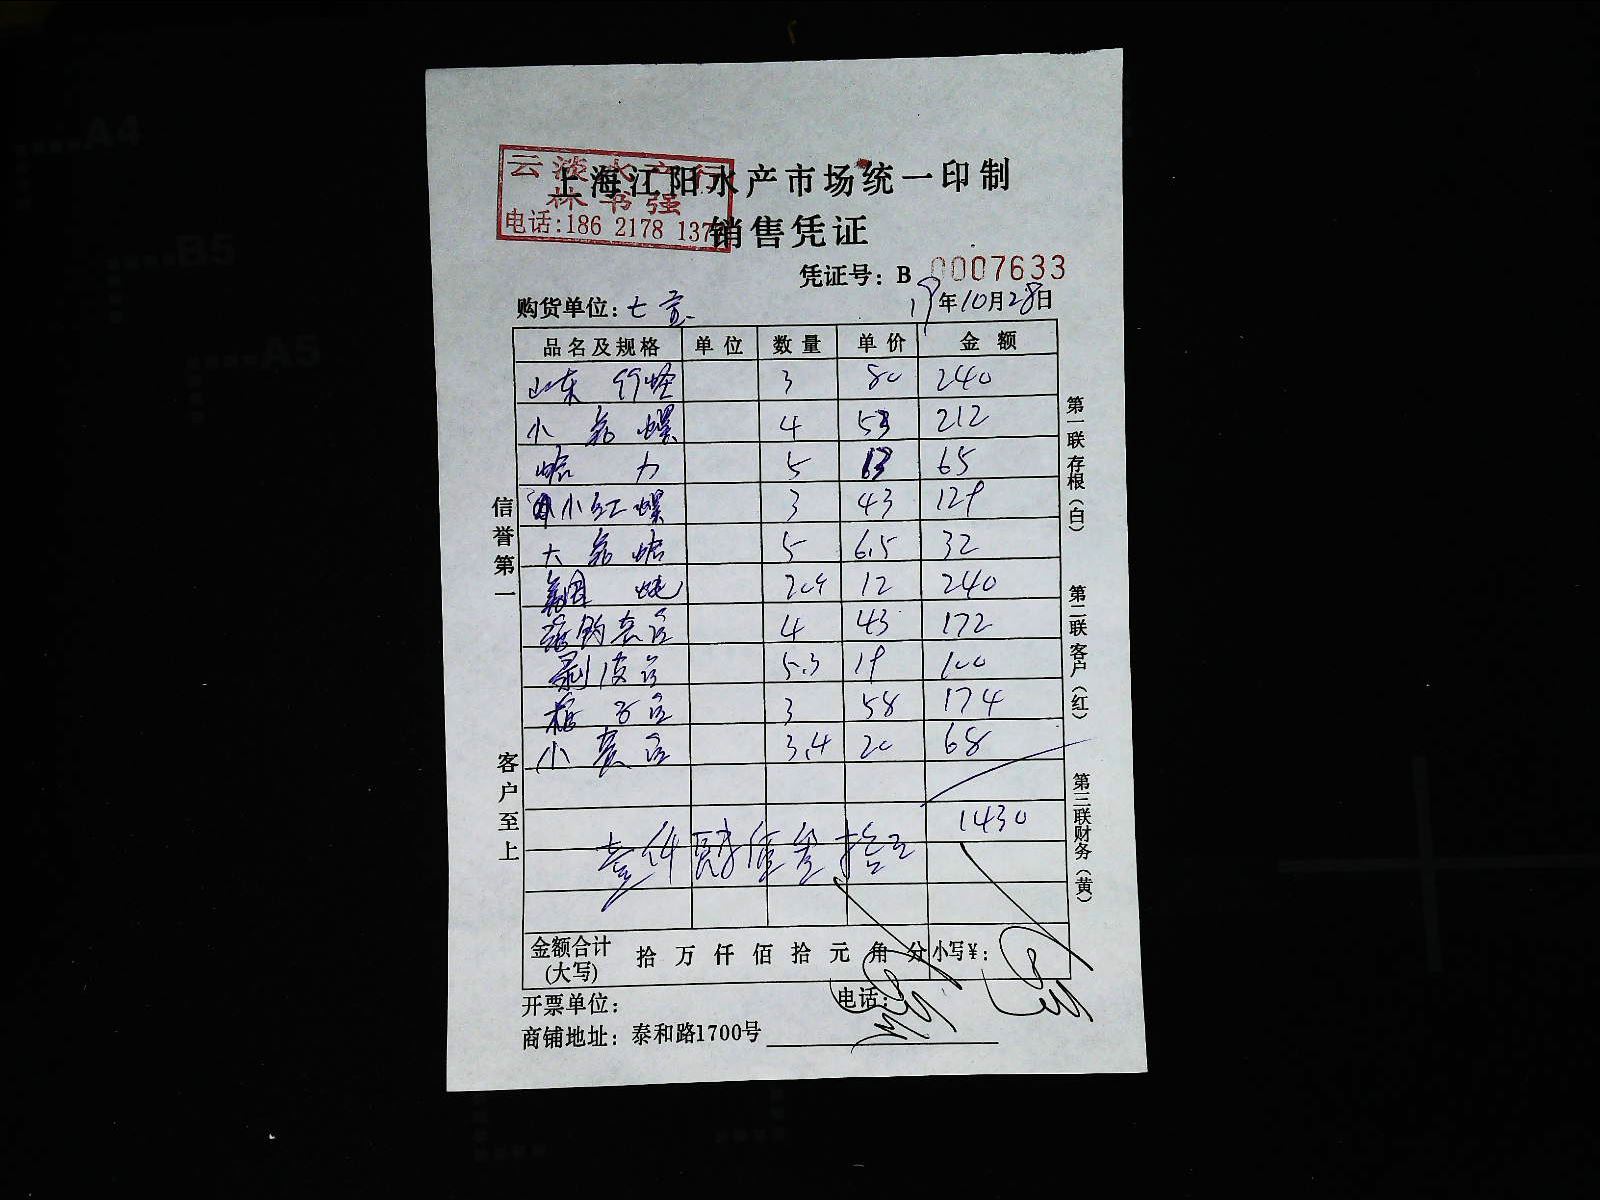 云淡水产行
林书强
电话:186 2178 137
上海江阳水产市场统一印制
销售凭证
凭证号: B 0007633
购货单位: 七宝 19年10月28日
品名及规格 单位 数量 单价 金额
山东 竹蛏 3 80 240
小 螺 4 53 212
蛤 力 5 13 65
小红螺 3 43 129
大 蛤 5 6.5 32
20.4 12 240
4 43 172
剥皮鱼 5.3 19 100
3 58 174
小黄鱼 3.4 20 68
1430
壹仟肆佰叁拾元
金额合计 拾 万 仟 佰 拾 元 角 分 小写¥:
(大写)
开票单位: 电话:
商铺地址: 泰和路1700号
信誉第一
客户至上
第一联 存根(白)
第二联 客户(红)
第三联 财务(黄)